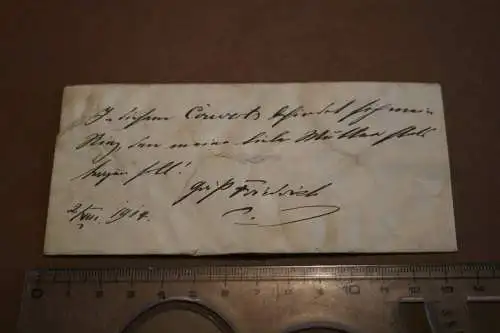 In diesem Couvert befindet sich mein
Ring den meine liebe Mutter stets
tragen soll!
Gruß Friedrich
2/VIII. 1914.
0 1 2 3 4 5 6 7 8 9 10 11 12 13 14